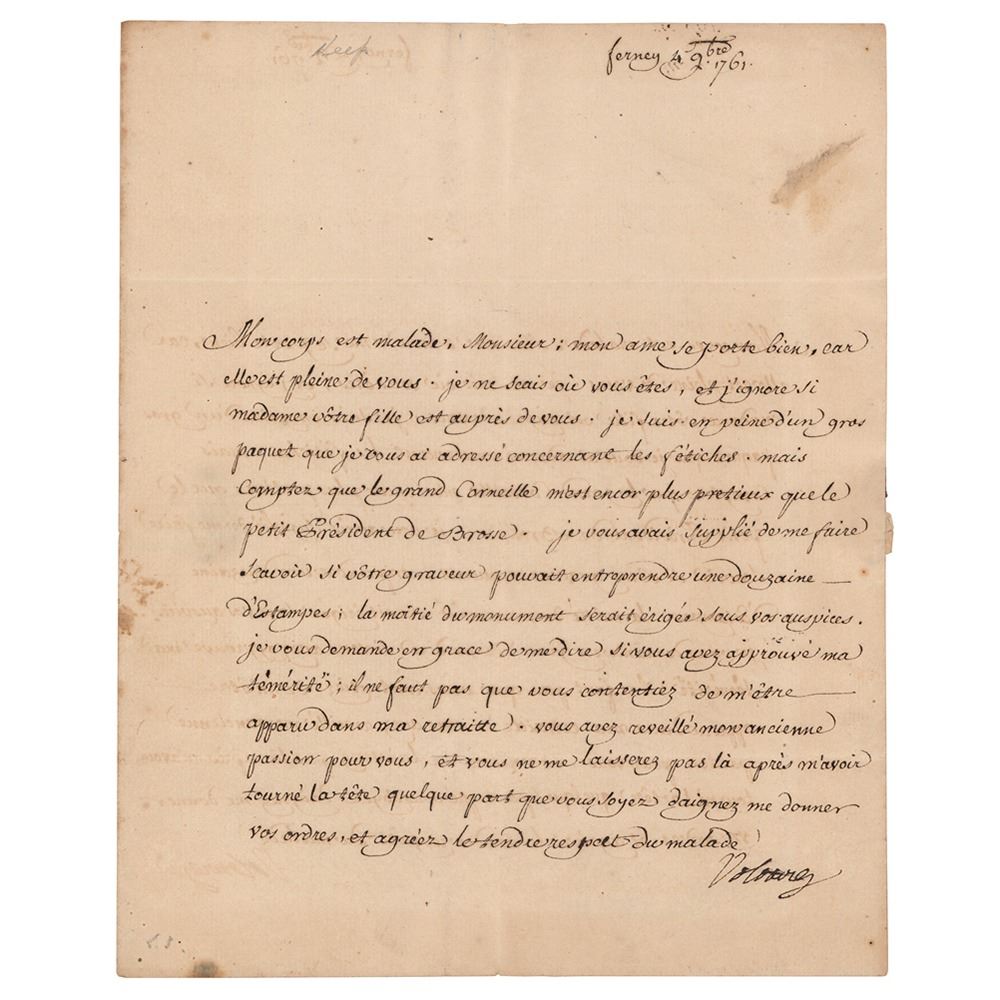 Keep
ferney 4 9.bre
1761.
Mon corps est malade, Monsieur; mon ame se porte bien, car
elle est pleine de vous. je ne scais où vous êtes, et j'ignore si
madame vôtre fille est auprès de vous. je suis en peine d'un gros
paquet que je vous ai adressé concernant les fétiches. mais
comptez que le grand Corneille m'est encor plus pretieux que le
petit Président de Brosse. je vous avais supplié de me faire
scavoir si vôtre graveur pouvait entreprendre une douzaine
d'Estampes; la moitié du monument serait érigée sous vos auspices.
je vous demande en grace de me dire si vous avez approuvé ma
témérité; il ne faut pas que vous contentiez de m'être
apparu dans ma retraitte. vous avez reveillé mon ancienne
passion pour vous, et vous ne me laisserez pas là après m'avoir
tourné la tête quelque part que vous soyez daignez me donner
vos ordres, et agréez le tendre respect du malade
Voltaire